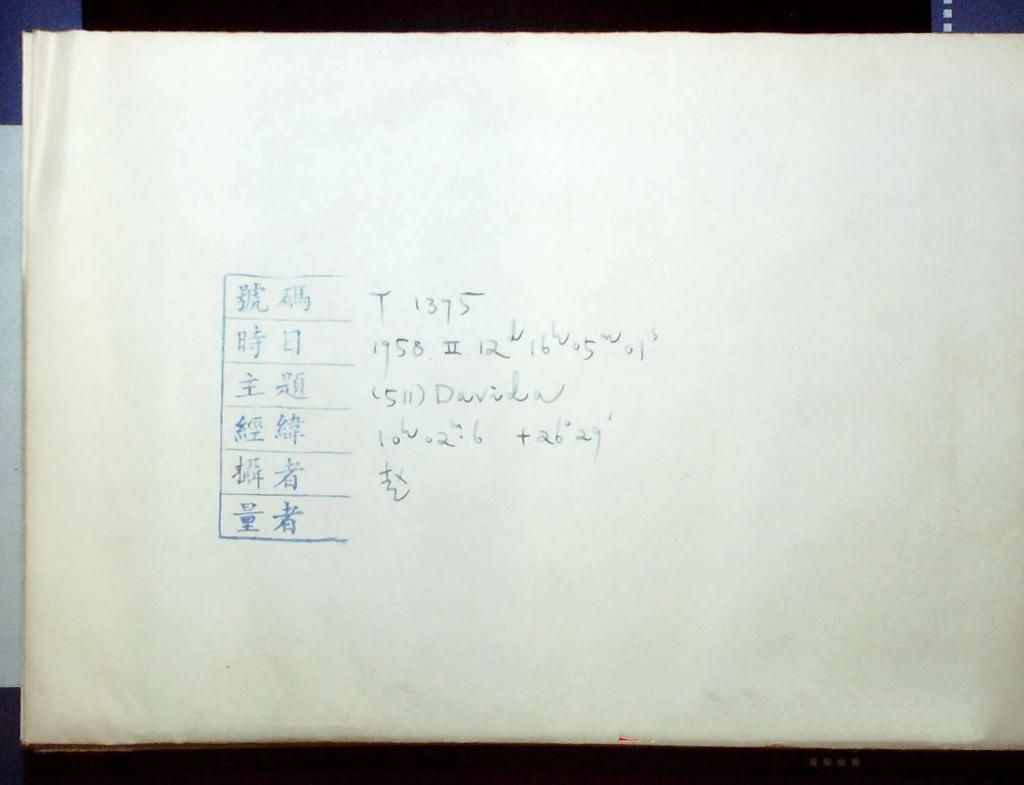 號碼 T 1375
時日 1958. II. 12ᵈ 16ʰ05ᵐ01ˢ
主題 (511) Davida
經緯 10ʰ02ᵐ.6 +26°29′
攝者 赵
量者